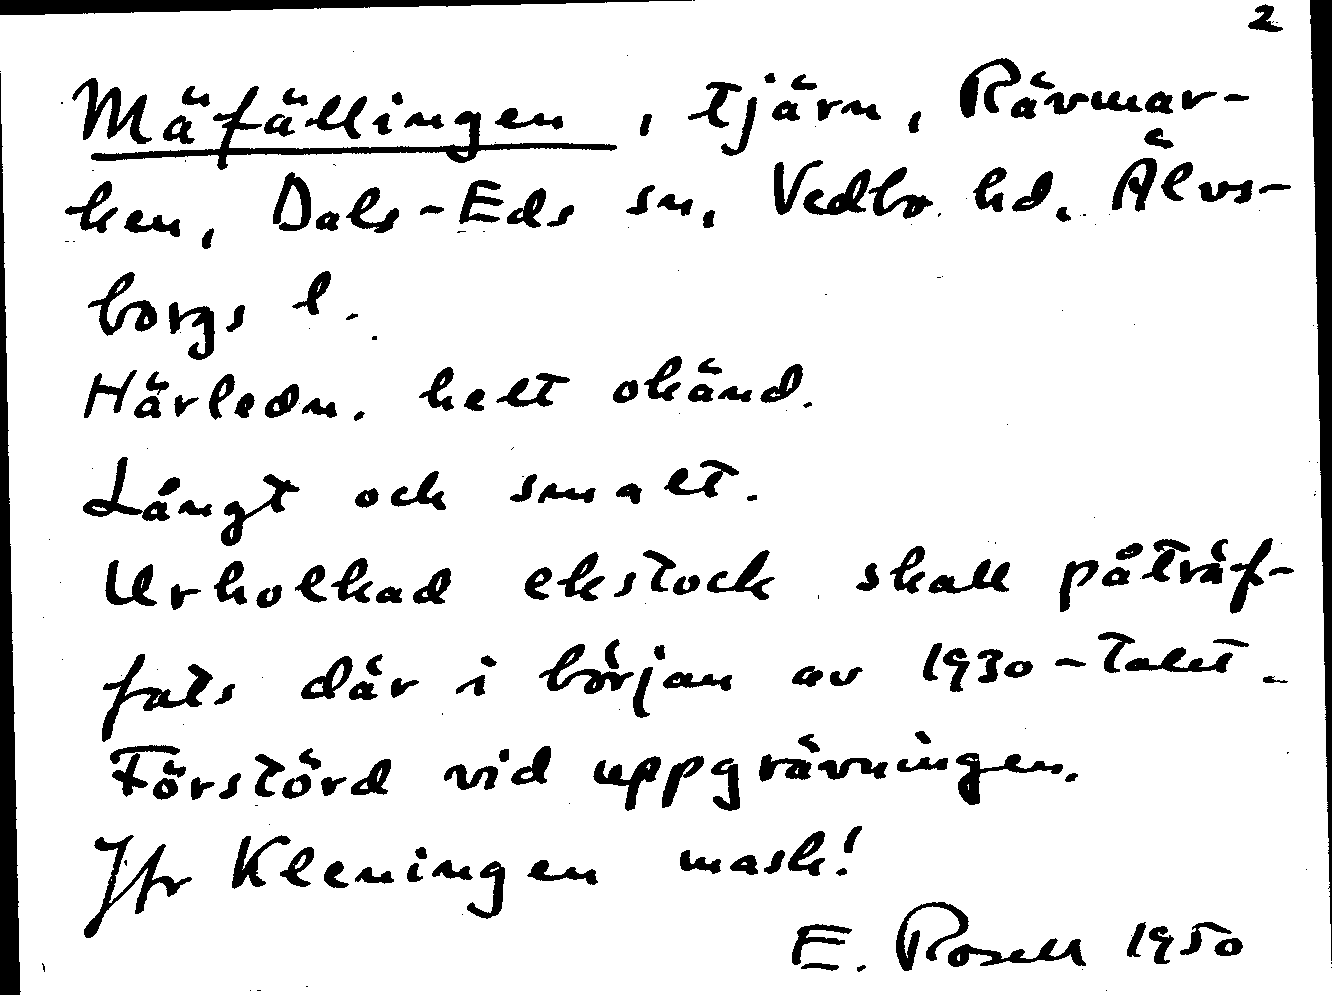 2
Mäfällingen, tjärn, Rävmar-
ken, Dals-Eds sn, Vedbo hd, Älvs-
borgs l.
Härledn. helt okänd.
Långt och smalt.
Urholkad ekstock skall påträf-
fats där i början av 1930-talet.
Förstörd vid uppgrävningen.
Jfr Kleningen mask!
E. Rosell 1950